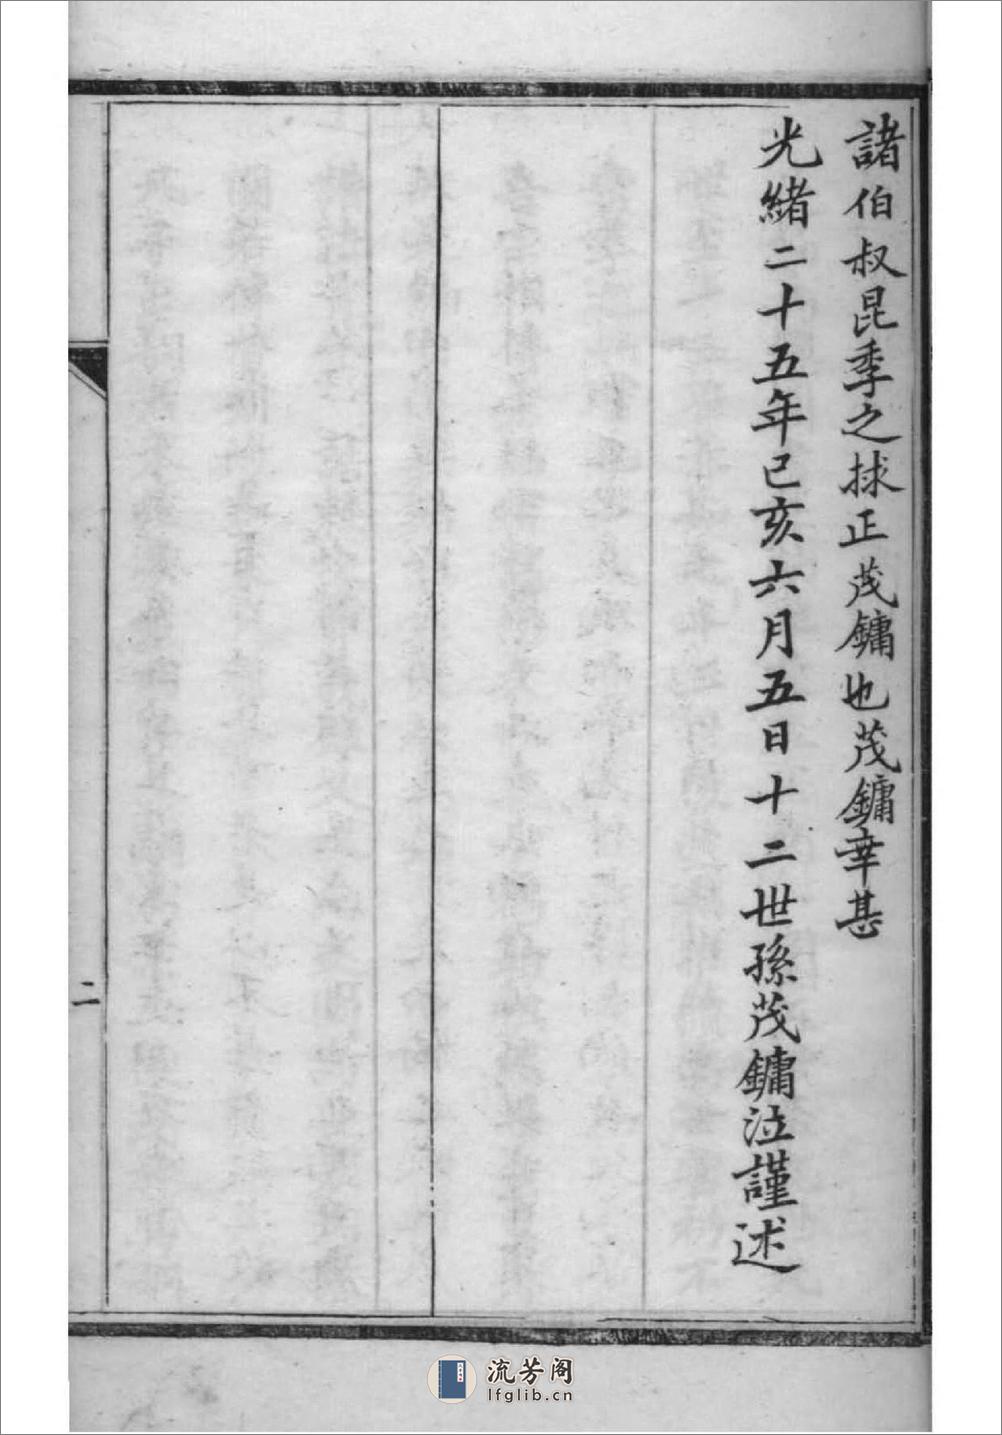 諸伯叔昆季之捄正茂鏞也茂鏞幸甚
光緒二十五年己亥六月五日十二世孫茂鏞泣謹述
二
流芳阁
lfglib.cn